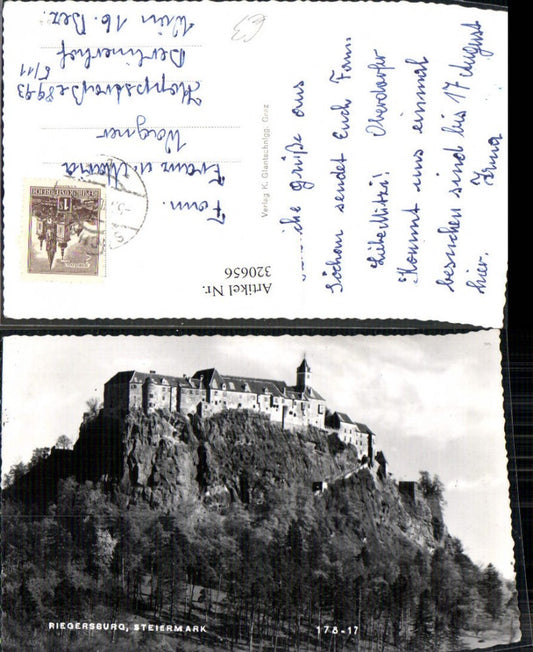 Artikel Nr.
320656
Verlag K. Glantschnigg, Graz
Fam.
Franz u. Maria
Wagner
Koppstraße 89-93
5/11
Berlinerhof
Wien 16. Bez.
Grüße aus
sendet Euch Fam.
Kommt uns einmal
besuchen sind bis 17 August
hier.
REPUBLIK ÖSTERREICH
RIEGERSBURG, STEIERMARK
178-17